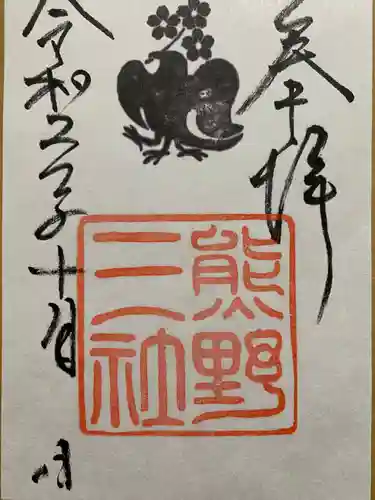 奉拝
熊野
三社
令和五年十月 日